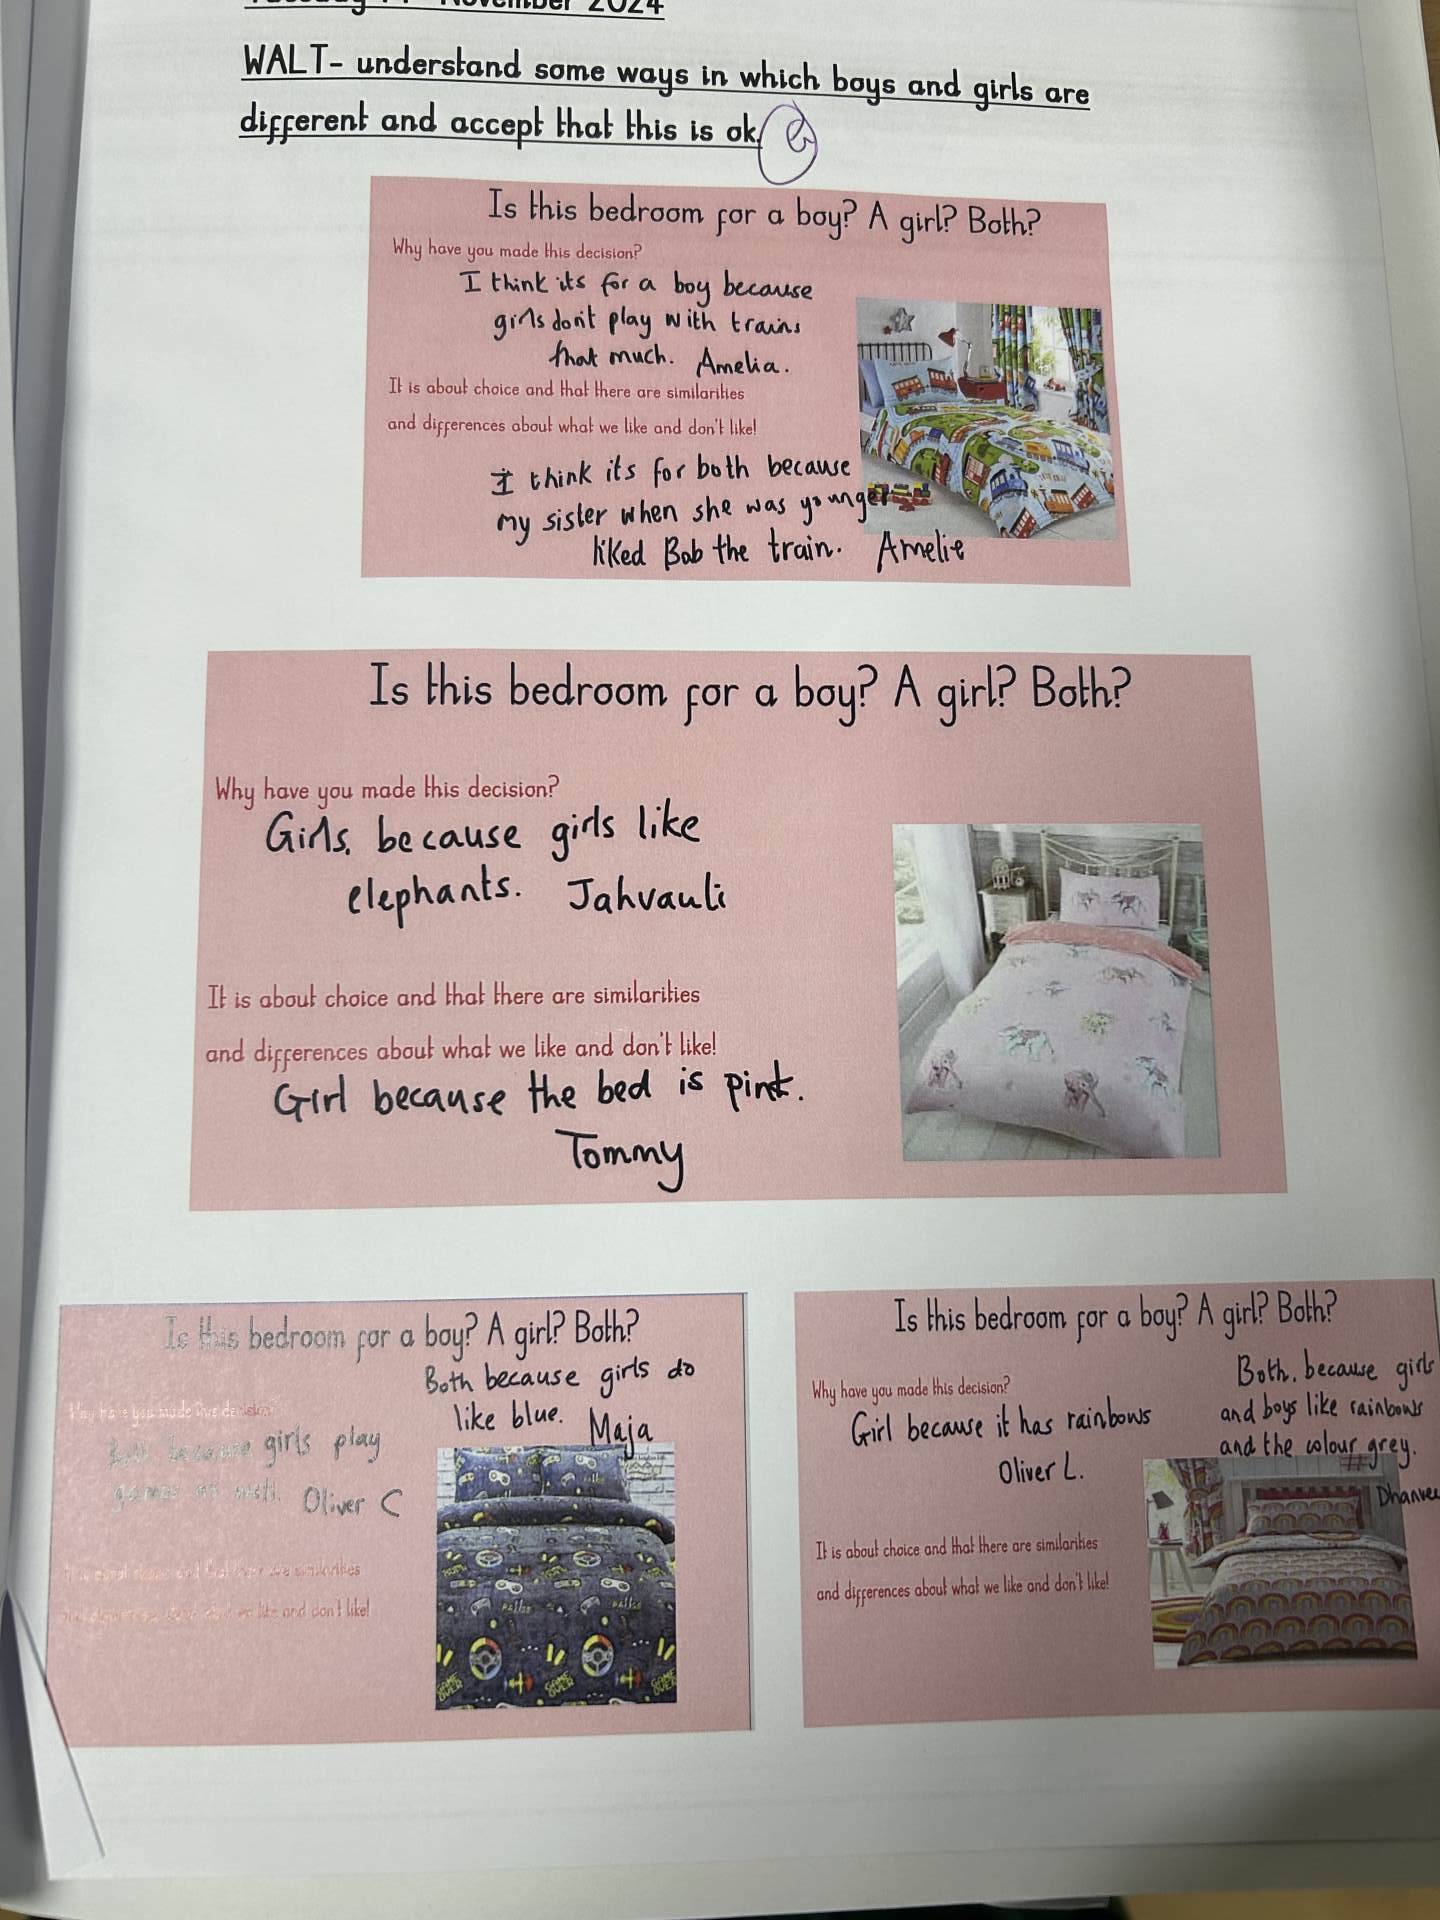 November 2024
WALT- understand some ways in which boys and girls are
different and accept that this is ok.
Is this bedroom for a boy? A girl? Both?
Why have you made this decision?
I think its for a boy because
girls don't play with trains
that much. Amelia.
It is about choice and that there are similarities
and differences about what we like and don't like!
I think its for both because
my sister when she was younger
liked Bob the train. Amelie
Is this bedroom for a boy? A girl? Both?
Why have you made this decision?
Girls, because girls like
elephants. Jahvauli
It is about choice and that there are similarities
and differences about what we like and don't like!
Girl because the bed is pink.
Tommy
Is this bedroom for a boy? A girl? Both?
Both because girls do
like blue. Maja
Why have you made this decision?
Both because girls play
games as well. Oliver C
It is about choice and that there are similarities
and differences about what we like and don't like!
GAME OVER
GAME OVER
GAME OVER
Is this bedroom for a boy? A girl? Both?
Why have you made this decision?
Girl because it has rainbows
Oliver L.
Both, because girls
and boys like rainbows
and the colour grey.
Dhanvee
It is about choice and that there are similarities
and differences about what we like and don't like!